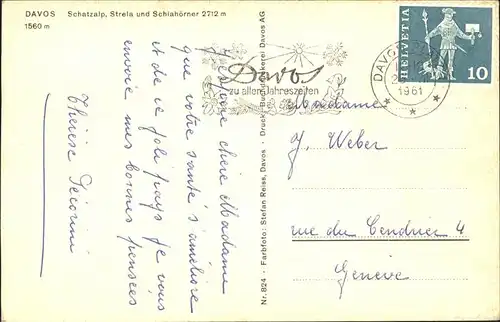 DAVOS Schatzalp, Strela und Schiahörner 2712 m
1560 m
J'espère chère Madame
que votre santé s'améliore
et de ce joli pays je vous
envoie mes bonnes pensées
Thérèse
Nr. 824 - Farbfoto: Stefan Reiss, Davos - Druck: Buchdruckerei Davos AG
Davos
zu allen Jahreszeiten
DAVOS
1961
HELVETIA
10
Madame
J. Weber
rue du Cendrier 4
Genève